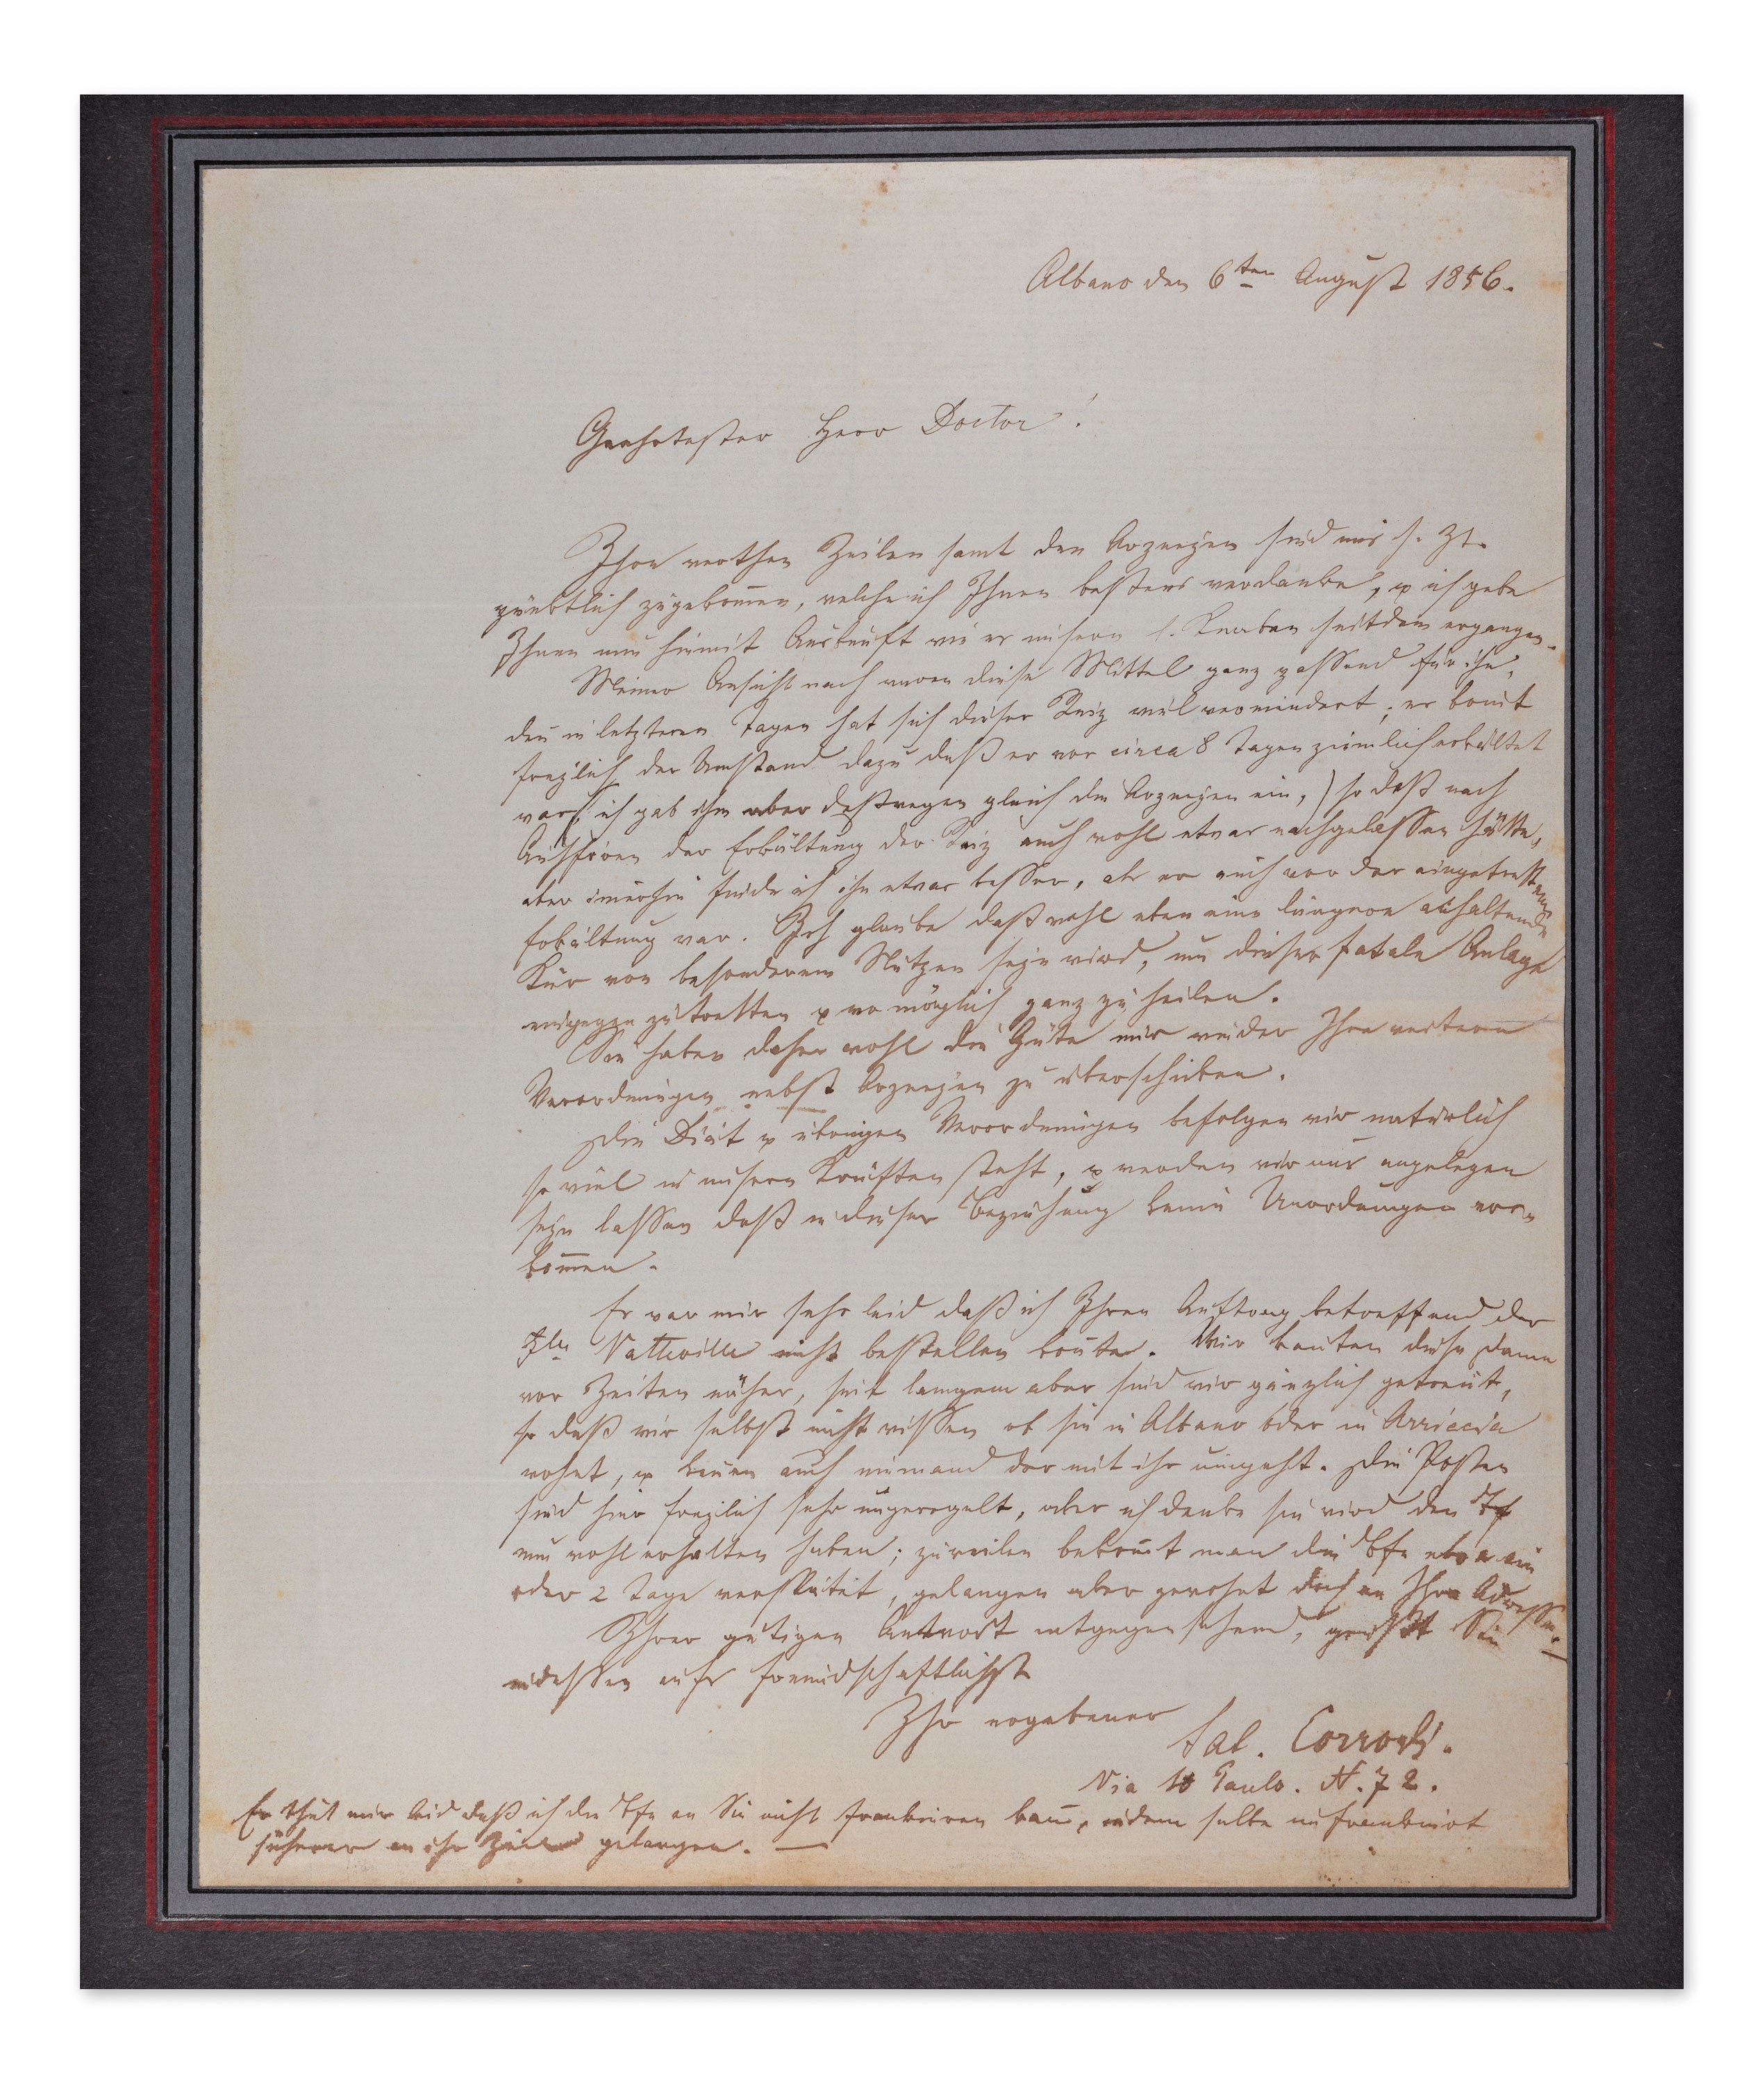 Albano den 6ten August 1856.
Geehrtester Herr Doctor!
Ihre werthen Zeilen samt den Arzneyen sind mir s. Zt.
pünktlich zugekom̅en, welche ich Ihnen bestens verdanke, & ich gebe
Ihnen nun hiemit Auskunft wie es unserm l. Knaben seitdem ergangen.
Meiner Ansicht nach waren diese Mittel ganz passend für ihn,
den̅ in letzteren Tagen hat sich dieser Reiz viel vermindert; es kom̅t
freylich der Umstand dazu daß er vor circa 8 Tagen ziemlich erkältet
war (ich gab ihm aber deßwegen gleich die Arzneyen ein,) so daß nach
Aufhören der Erkältung der Reiz auch wohl etwas nachgelassen hätte,
aber im̅erhin finde ich ihn etwas besser, als er auch vor der eingetrettenen
Erkältung war. Ich glaube daß wohl eben eine längere anhaltende
Kur von besonderem Nutzen seyn wird, um dieser fatale Anlage
entgegen zu tretten & wo möglich ganz zu heilen.
Sie haben daher wohl die Güte mir wieder Ihre weitern
Verordnungen nebst Arzneyen zu überschicken.
Die Diät & übrigen Verordnungen befolgen wir natürlich
so viel in unsern Kräften steht, & werden wir uns angelegen
seyn lassen daß in dieser Beziehung keine Unordnungen vor-
kom̅en.
Es war mir sehr leid daß ich Ihren Auftrag betreffend der
Vatteville nicht bestellen kon̅te. Wir kan̅ten diese Dame
vor Zeiten näher, seit langem aber sind wir gänzlich getren̅t,
so daß wir selbst nicht wissen ob sie in Albano oder in Arriccia
wohnt, & ken̅en auch niemand der mit ihr umgeht. Die Posten
sind hier freylich sehr ungeregelt, aber ich denke sie wird den Bf
nun wohl erhalten haben; zuweilen bekom̅t man die Bfe etwa ein
oder 2 Tage verspätet, gelangen aber gewohnt doch an Ihre Adressen.
Ihrer gütigen Antwort entgegen sehend, grüßt Sie
indessen aufs freundschaftlichste
Ihr ergebener
Sal. Corrodi.
Via St Paulo. N. 72.
Es thut mir leid daß ich die Bfe an Sie nicht frankiren kan̅, indem selbe unfrankirt
sicherer an ihr Ziel gelangen.